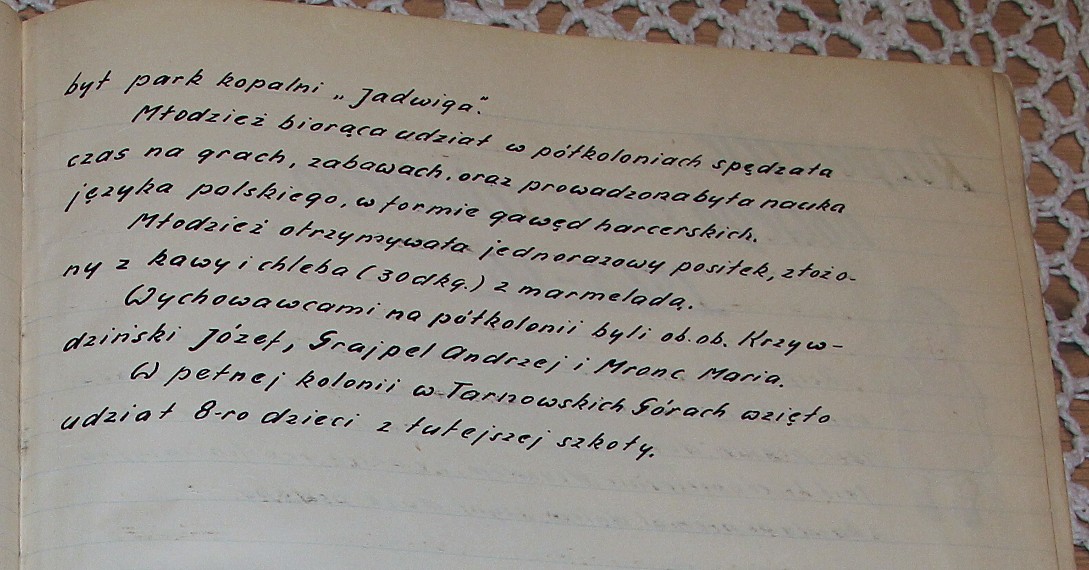 był park kopalni „Jadwiga".
Młodzież biorąca udział w półkoloniach spędzała
czas na grach, zabawach, oraz prowadzona była nauka
języka polskiego, w formie gawęd harcerskich.
Młodzież otrzymywała jednorazowy posiłek, złożo-
ny z kawy i chleba (30dkg.) z marmeladą.
Wychowawcami na półkolonii byli ob. ob. Krzyw-
dziński Józef, Grajpel Andrzej i Mronc Maria.
W pełnej kolonii w Tarnowskich Górach wzięto
udział 8-ro dzieci z tutejszej szkoły.